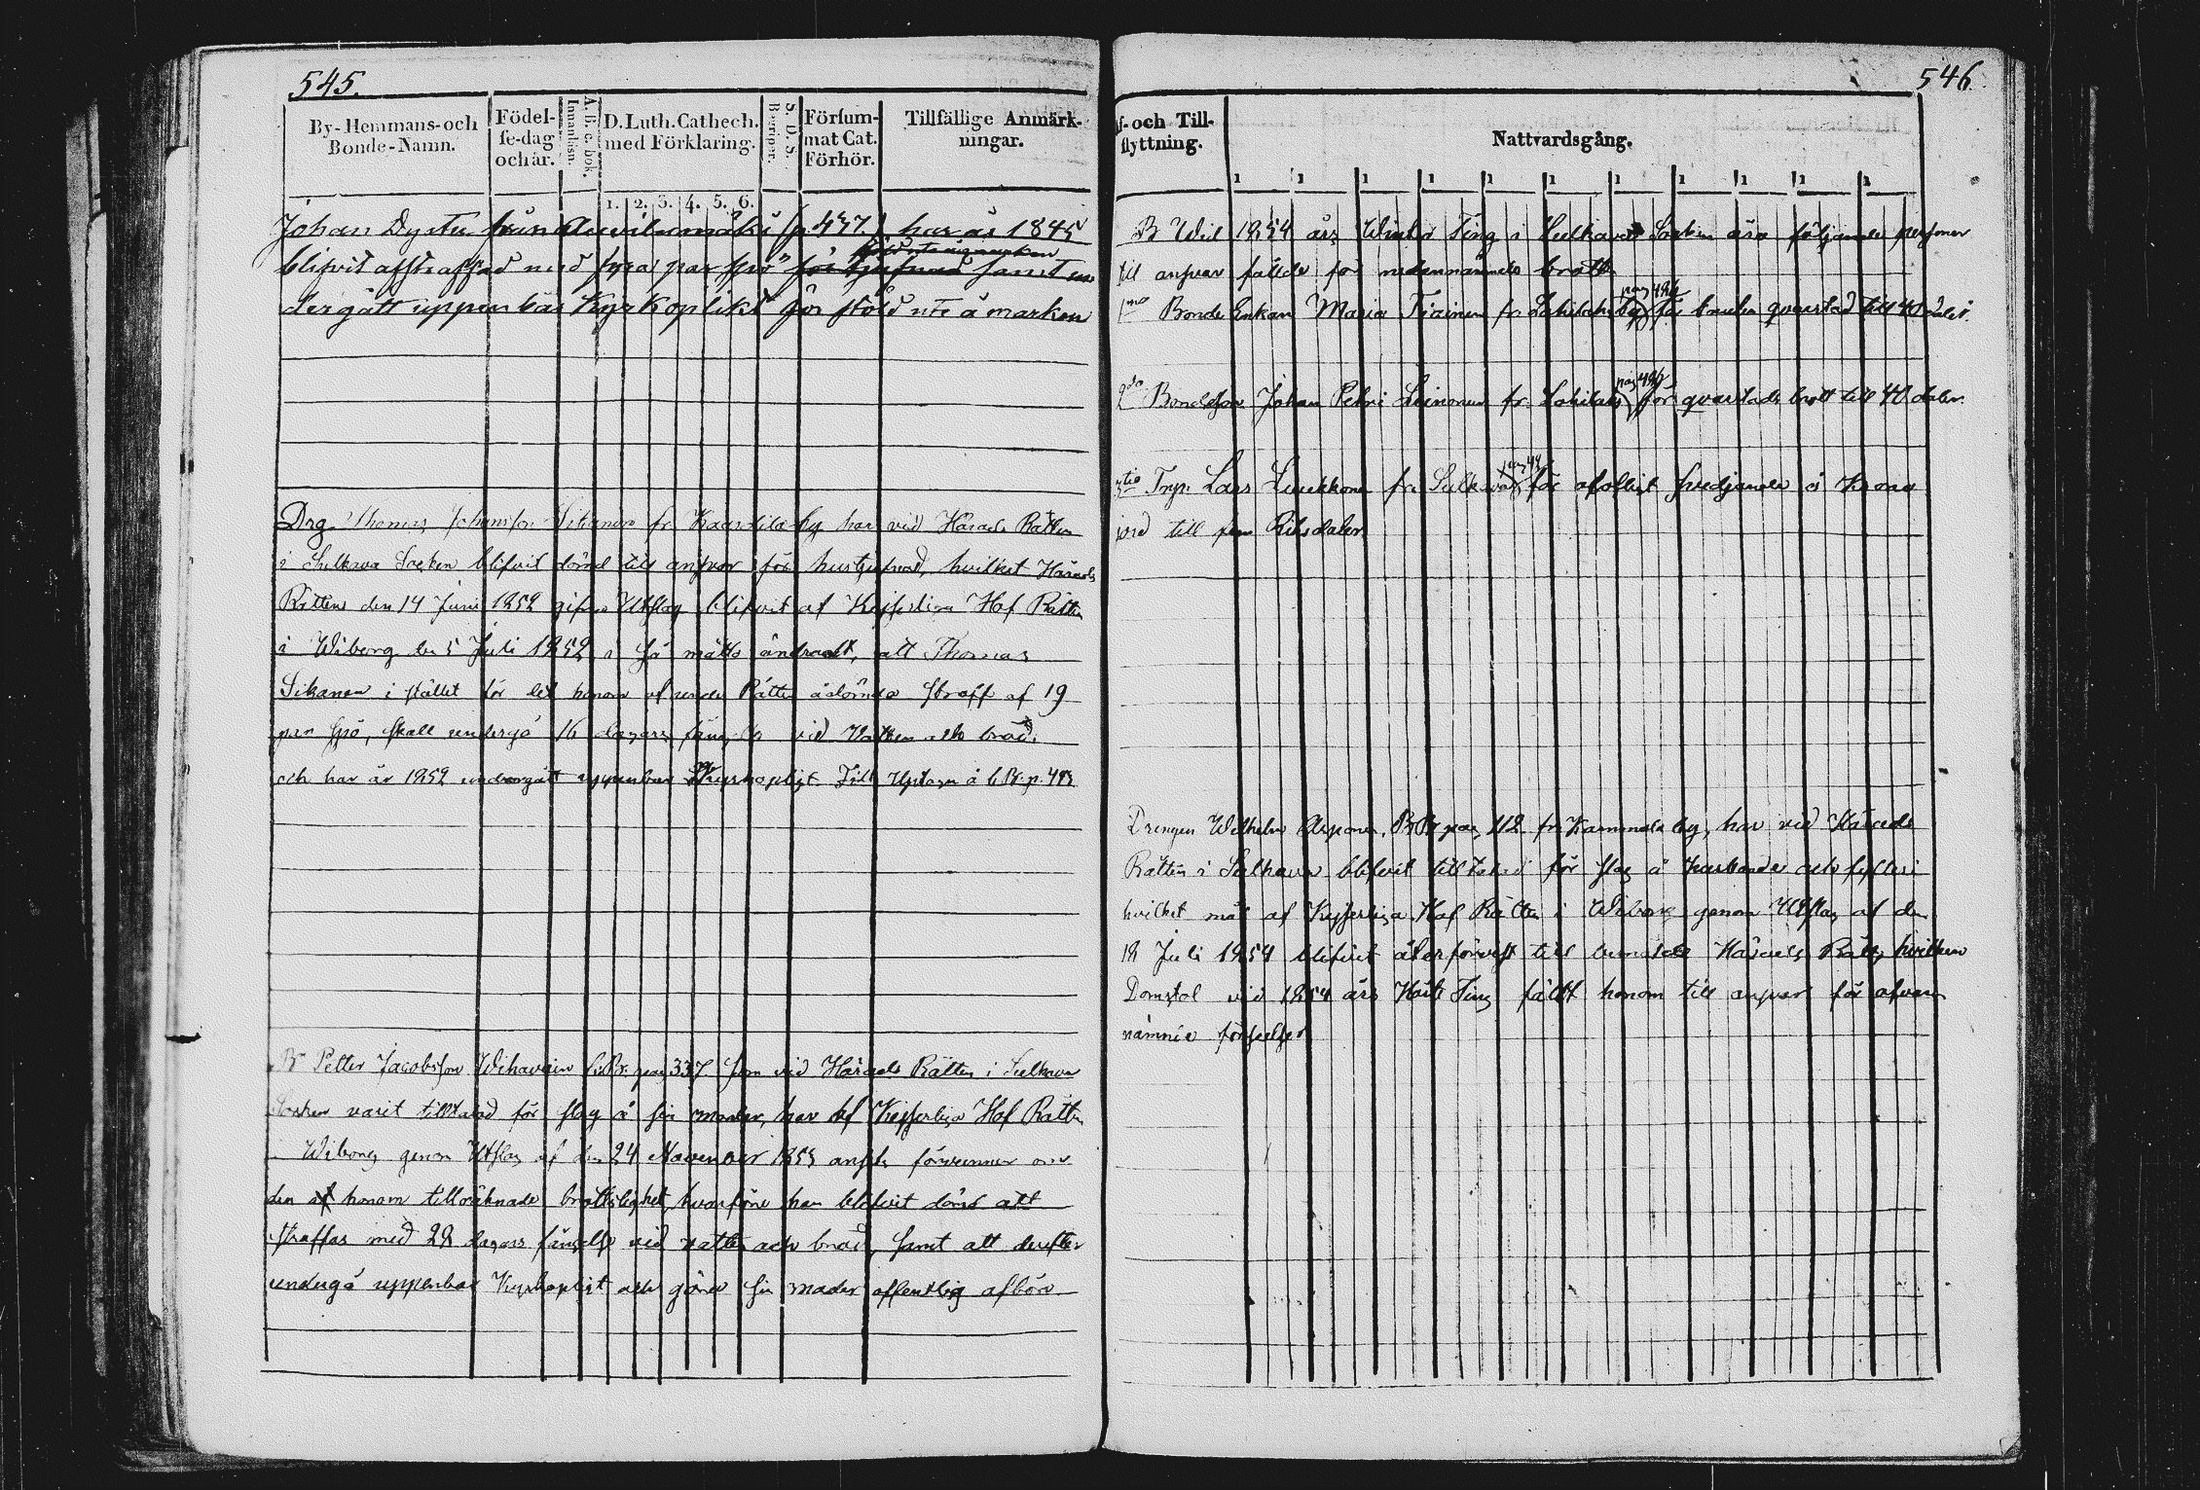 545.
By-Hemmans-och Bonde-Namn.
Födel-se-dag och år.
A. b. c. bok. Innanläsn.
D. Luth. Cathech. med Förklaring.
1. 2. 3. 4. 5. 6.
S. D. S. Begriper.
Försum-mat Cat. Förhör.
Tillfällige Anmärk-ningar.
Johan Dyster från (p 437.) har år 1845
blifvit afstraffad med fyra par spö för tjufnad samt un
dergått uppenbar Kyrkoplikt för stöld ute å marken
Drg Thomas Johansson Sikanen fr. Kaartila by har vid Härads Rätten
i Sulkava Socken blifvit dömd till ansvar för hustjufnad, hvilket Härads
Rättens den 14 Juni 1852 gifna Utslag blifvit af Kejserliga Hof Rätten
i Wiborg den 5 Juli 1852 så måtto ändradt, att Thomas
Sikanen i stället för det honom af under Rätten ådömda straff af 19
par spö, skall undergå 16 dagars fäng. vid Vatten och bröd.
och har år 1852 undergått uppenbar Kyrkopligt.
Petter Jacobsson pag 337. som vid Härads Rätten i Sulkava
Socken varit tilltalad för slag å sin moder, har af Kejserliga Hof Rätten
i Wiborg genom Utslag af den 24 November 1853 ansetts förvunnen om
den af honom tillräknade brottslighet, hvarföre han blifvit dömd att
straffas med 28 dagars fängelse vid vatten och bröd, samt att derefter
undergå uppenbar Kyrkopligt och göra sin moder offentlig afbön
546.
f- och Till-flyttning.
Nattvardsgång.
1 1 1 1 1 1 1 1 1 1 1
Wid 1854 års Winter Ting i Sulkava Socken äro följande personer
till ansvar fällde för nedannämnde brott
1mo Bonde Enkan Maria Tiainen fr. by pag 494 för qvarstad till 40 daler.
2do Bondeson Johan Petri Leinonen fr. pag 494 för qvarstads brott till 40 daler.
3tio Lars Luukkonen fr. Sulkava för svedjande å Krono
jord till fem Riksdaler.
Drengen Wilhelm Asponen, pag 112 fr. Kammala by, har vid Härads
Rätten i Sulkava blifvit tilltalad för slag å och fylleri
hvilket mål af Kejserliga Hof Rätten i Wiborg genom Utslag af den
18 Juli 1854 blifvit återförvist till bemälde Härads Rätt, hvilken
Domstol vid 1854 års Höste Ting fällt honom till ansvar för ofvan
nämnde förseelser.